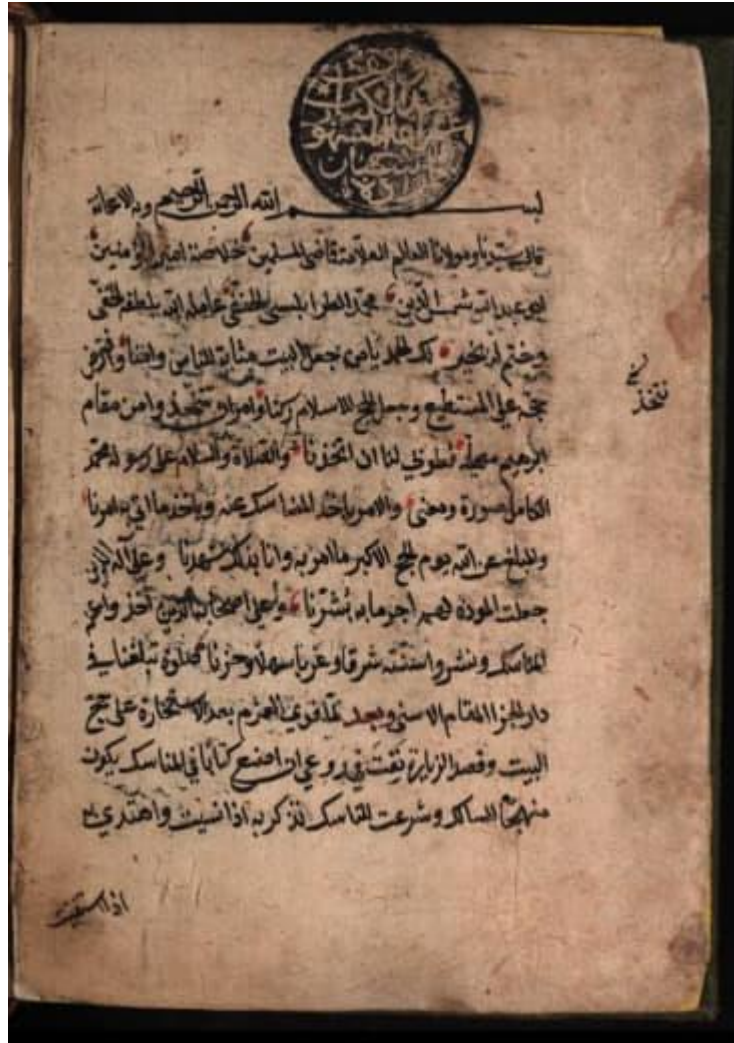 بسم الله الرحمن الرحيم وبه الاعانة
قال سيدنا ومولانا العالم العلامة قاضي المسلمين خلاصة امير المؤمنين
ابو عبد الله شمس الدين محمد الطرابلسي الحنفي عامله الله بلطفه الخفي
وختم له بخير لك الحمد يا من جعل البيت مثابة للناس وامنا وافترض
حجه على المستطيع وجعل الحج للاسلام ركنا وامر ان نتخذ وامن مقام
ابرهيم مصلى فطوبى لنا ان اتخذنا والصلاة والسلام على رسوله محمد
الكامل صورة ومعنى والامر باخذ المناسك عنه وباخذ ما اتى به امرنا
والمبلغ عن الله يوم الحج الاكبر ما امر به وانا بذلك شهدنا وعلى آله الذي
جعلت المودة لهم اجر ما به بشرنا وعلى اصحابه الذين
المناسك ونشروا سنته شرقا وغربا سهلا وحزنا صلوة تبلغنا في
دار الجزا المقام الاسنى وبعد لما قوي العزم بعد الاستخارة على حج
البيت وقصد الزيارة نفث في روعي ان اضع كتابا في المناسك يكون
منهجا للسالك وشرعت للناسك اتذكر به اذا نسيت واهتدي به
نتخذ
اذا